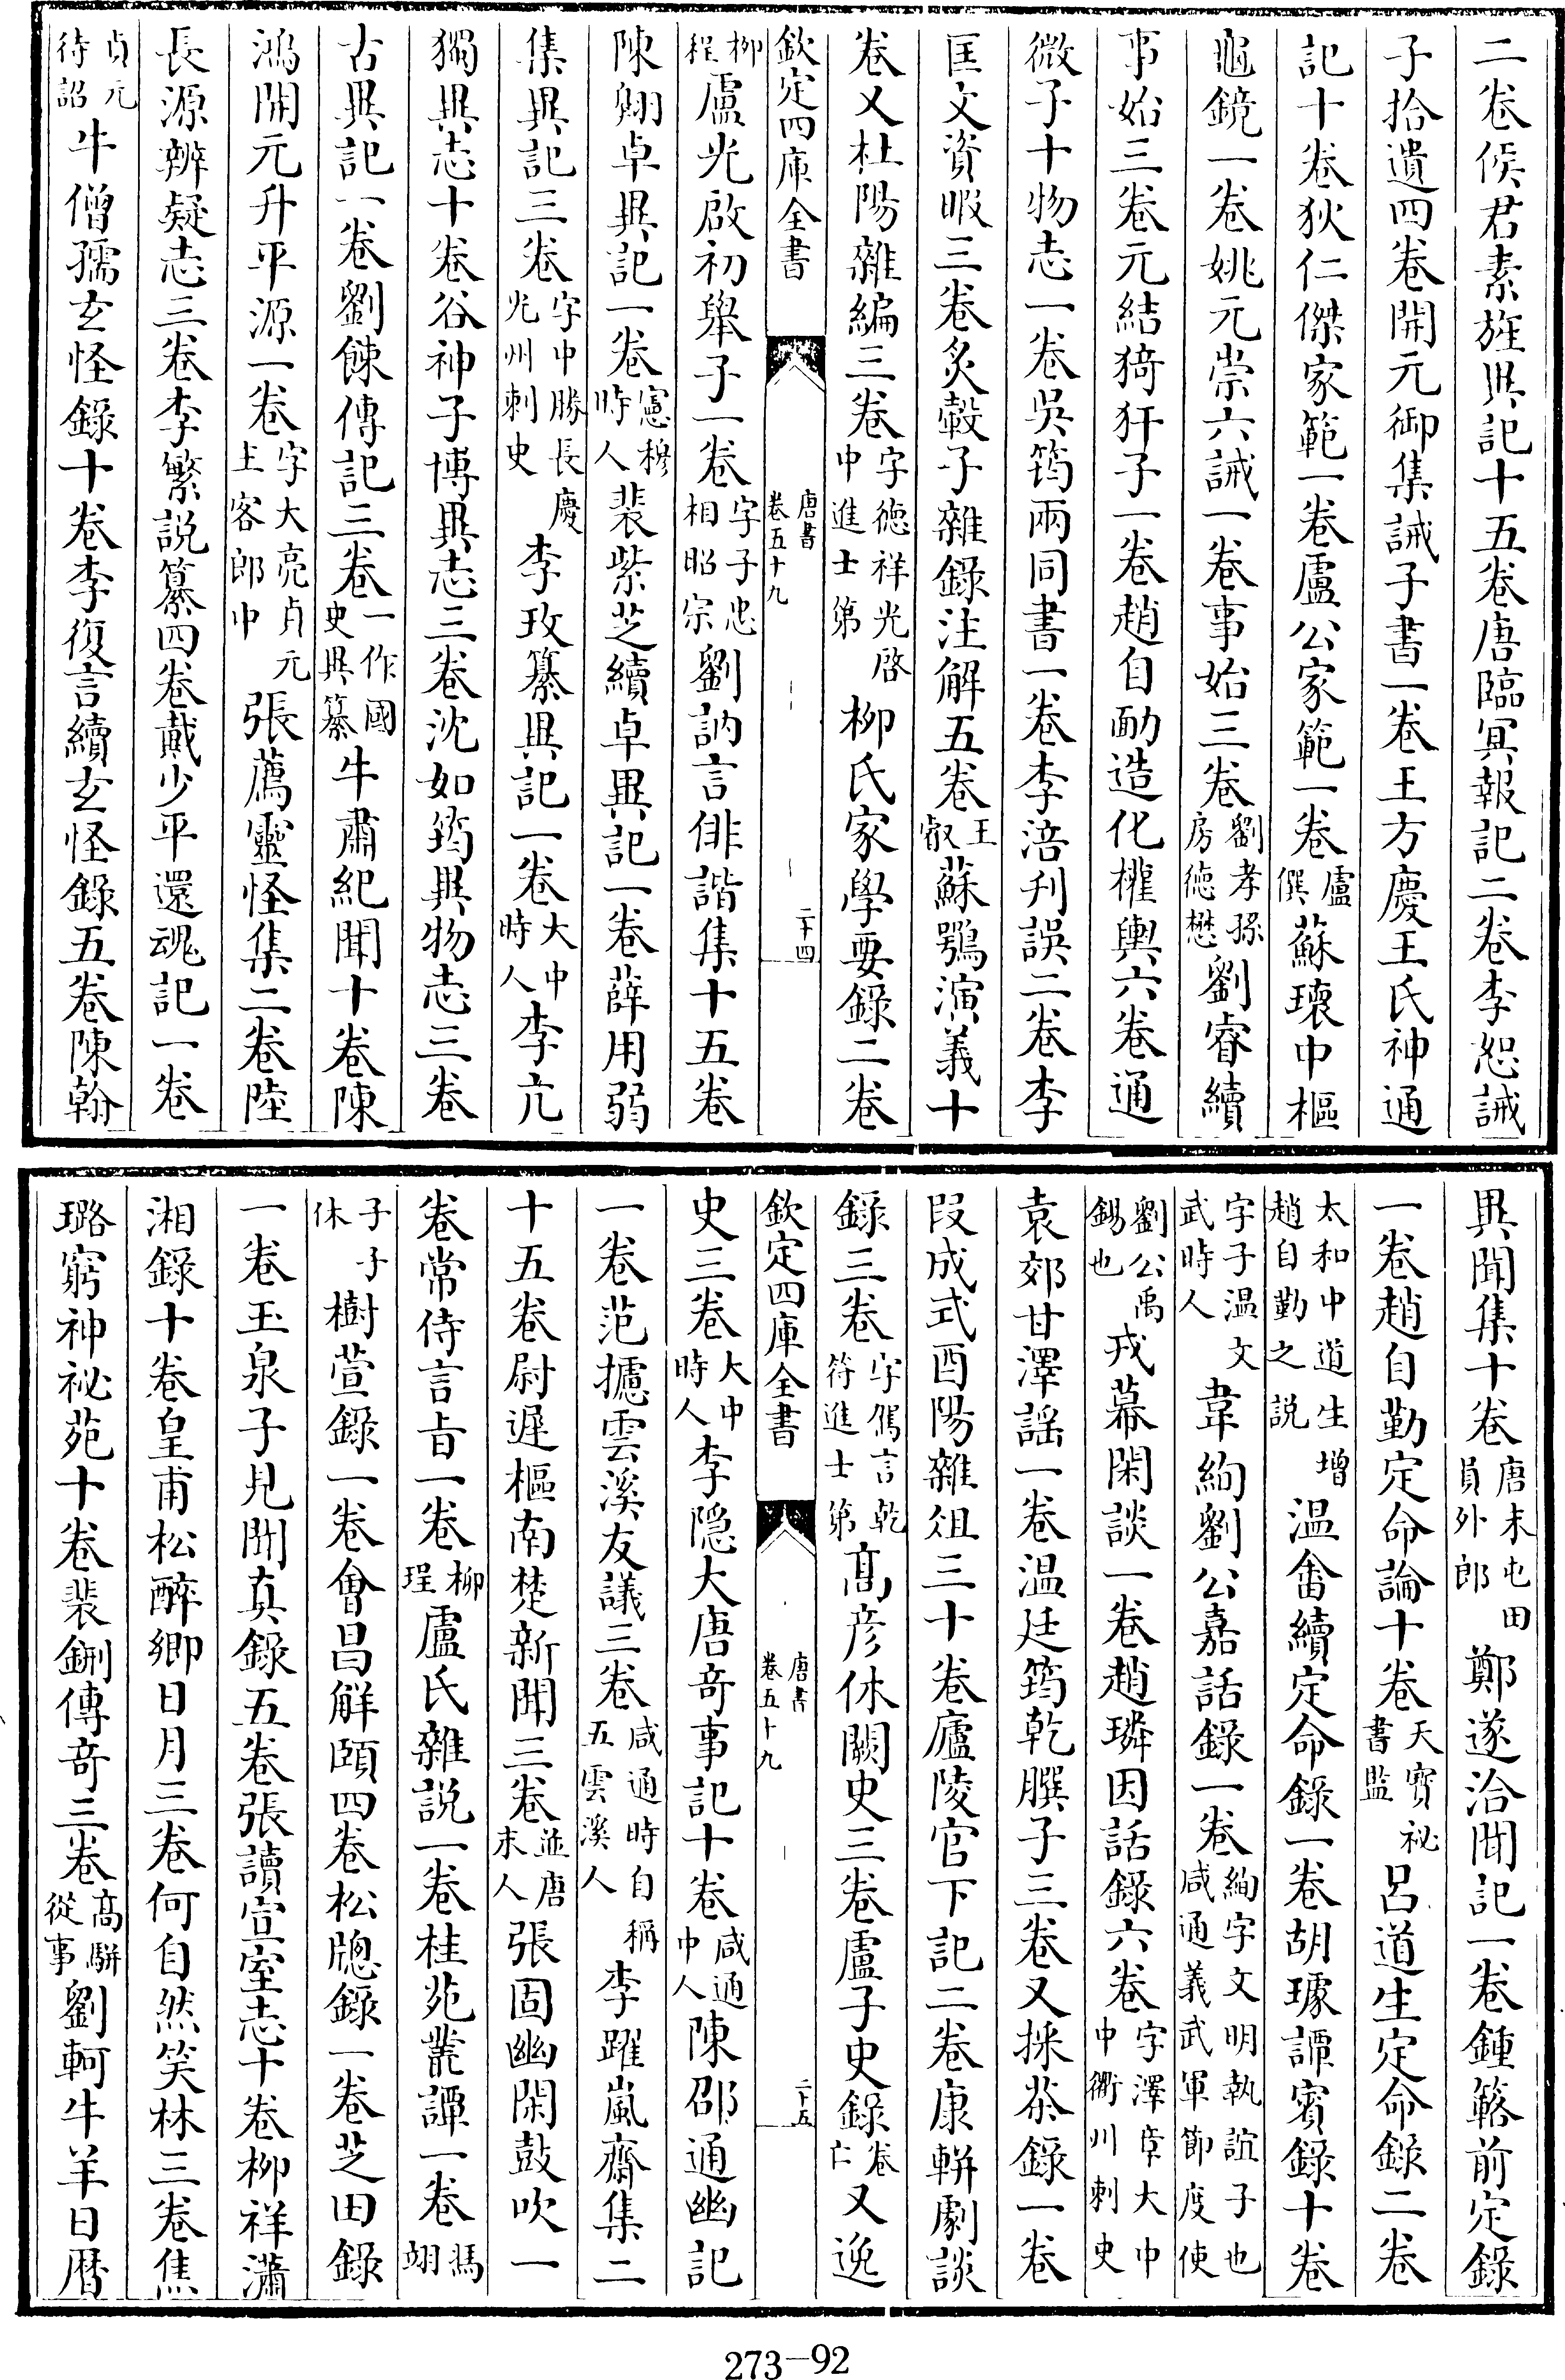 二卷侯君素旌異記十五卷唐臨冥報記二卷李恕誡
子拾遺四卷開元御集誡子書一卷王方慶王氏神通
記十卷狄仁傑家範一卷盧公家範一卷盧僎蘇瓌中樞
龜鏡一卷姚元崇六誡一卷事始三卷劉孝孫房德懋劉睿續
事始三卷元結猗犴子一卷趙自勔造化權輿六卷通
微子十物志一卷吳筠兩同書一卷李涪刋誤二卷李
匡文資暇三卷炙轂子雜錄注解五卷王叡蘇鶚演義十
卷又杜陽雜編三卷字德祥光啓中進士第柳氏家學要錄二卷
欽定四庫全書 唐書卷五十九 二十四
柳程盧光啟初舉子一卷字子忠相昭宗劉訥言俳諧集十五卷
陳翱卓異記一卷憲穆時人裴紫芝續卓異記一卷薛用弱
集異記三卷字中勝長慶光州刺史李玫纂異記一卷大中時人李亢
獨異志十卷谷神子博異志三卷沈如筠異物志三卷
古異記一卷劉餗傳記三卷一作國史異纂牛肅紀聞十卷陳
鴻開元升平源一卷字大亮貞元主客郎中張薦靈怪集二卷陸
長源辨疑志三卷李繁說纂四卷戴少平還魂記一卷
貞元待詔牛僧孺玄怪錄十卷李復言續玄怪錄五卷陳翰
異聞集十卷唐末屯田員外郎鄭遂洽聞記一卷鍾簵前定錄
一卷趙自勤定命論十卷天寶祕書監呂道生定命錄二卷
太和中道生增趙自勤之說溫畬續定命錄一卷胡璩譚賓錄十卷
字子溫文武時人韋絢劉公嘉話錄一卷絢字文明執誼子也咸通義武軍節度使
劉公禹錫也戎幕閑談一卷趙璘因話錄六卷字澤章大中中衢州刺史
袁郊甘澤謠一卷溫廷筠乾𦠆子三卷又採茶錄一卷
段成式酉陽雜俎三十卷廬陵官下記二卷康軿劇談
錄三卷字駕言乾符進士第高彥休闕史三卷盧子史錄卷亡又逸
欽定四庫全書 唐書卷五十九 二十五
史三卷大中時人李隱大唐奇事記十卷咸通中人陳邵通幽記
一卷范攄雲溪友議三卷咸通時自稱五雲溪人李躍嵐齋集二
十五卷尉遲樞南楚新聞三卷並唐末人張固幽閑鼓吹一
卷常侍言旨一卷柳珵盧氏雜說一卷桂苑叢譚一卷馮翊
子子休樹萱錄一卷會昌解頤四卷松牕錄一卷芝田錄
一卷玉泉子見聞真錄五卷張讀宣室志十卷柳祥瀟
湘錄十卷皇甫松醉鄉日月三卷何自然笑林三卷焦
璐窮神祕苑十卷裴鉶傳奇三卷高駢從事劉軻牛羊日曆
273-92